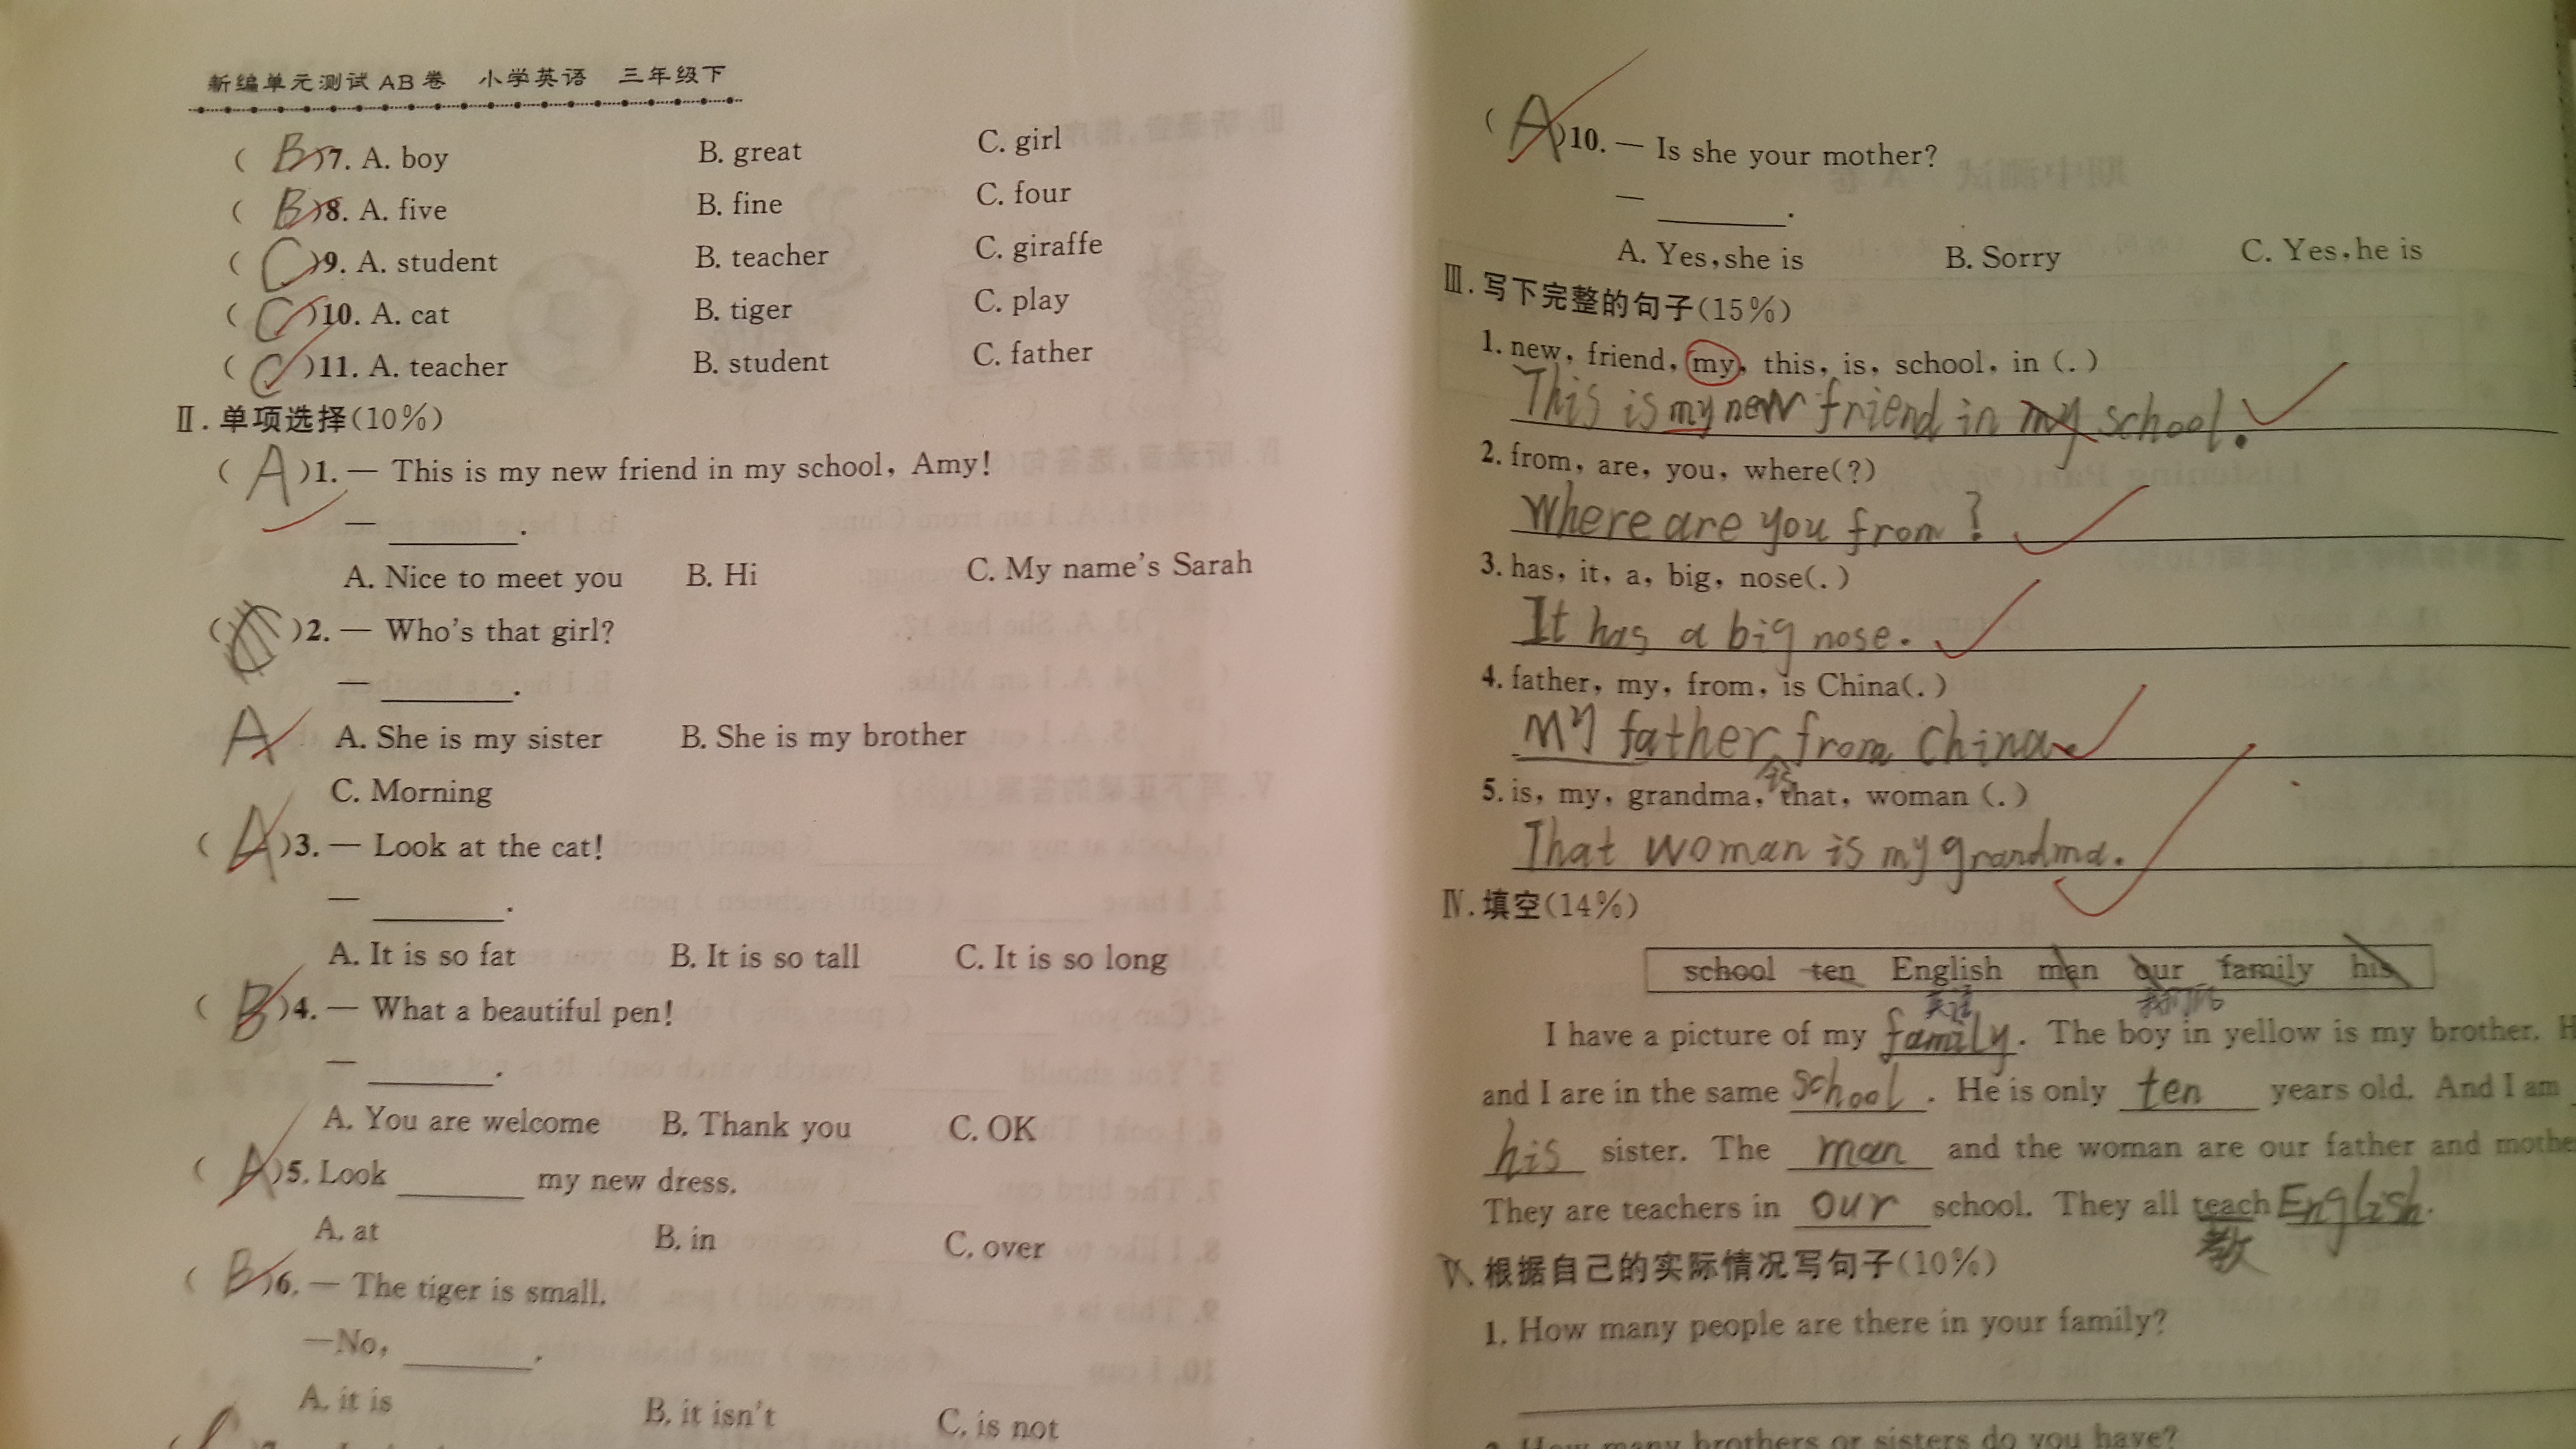 新编单元测试AB卷 小学英语 三年级下
( B )7. A. boy B. great C. girl
( B )8. A. five B. fine C. four
( C )9. A. student B. teacher C. giraffe
( C )10. A. cat B. tiger C. play
( C )11. A. teacher B. student C. father
Ⅱ. 单项选择(10%)
( A )1. — This is my new friend in my school, Amy!
— ______.
A. Nice to meet you B. Hi C. My name's Sarah
( )2. — Who's that girl?
— ______.
A A. She is my sister B. She is my brother
C. Morning
( A )3. — Look at the cat!
— ______.
A. It is so fat B. It is so tall C. It is so long
( B )4. — What a beautiful pen!
— ______.
A. You are welcome B. Thank you C. OK
( A )5. Look ______ my new dress.
A. at B. in C. over
( B )6. — The tiger is small.
—No, ______.
A. it is B. it isn't C. is not
( A )10. — Is she your mother?
— ______.
A. Yes, she is B. Sorry C. Yes, he is
Ⅲ. 写下完整的句子(15%)
1. new, friend, my, this, is, school, in (.)
This is my new friend in my school.
2. from, are, you, where(?)
Where are you from?
3. has, it, a, big, nose(.)
It has a big nose.
4. father, my, from, is China(.)
My father is from China.
5. is, my, grandma, that, woman (.)
That woman is my grandma.
Ⅳ. 填空(14%)
school ten English man our family his
英语 我们的
I have a picture of my family. The boy in yellow is my brother. H
and I are in the same school. He is only ten years old. And I am
his sister. The man and the woman are our father and mothe
They are teachers in our school. They all teach English.
教
Ⅴ. 根据自己的实际情况写句子(10%)
1. How many people are there in your family?
How many brothers or sisters do you have?